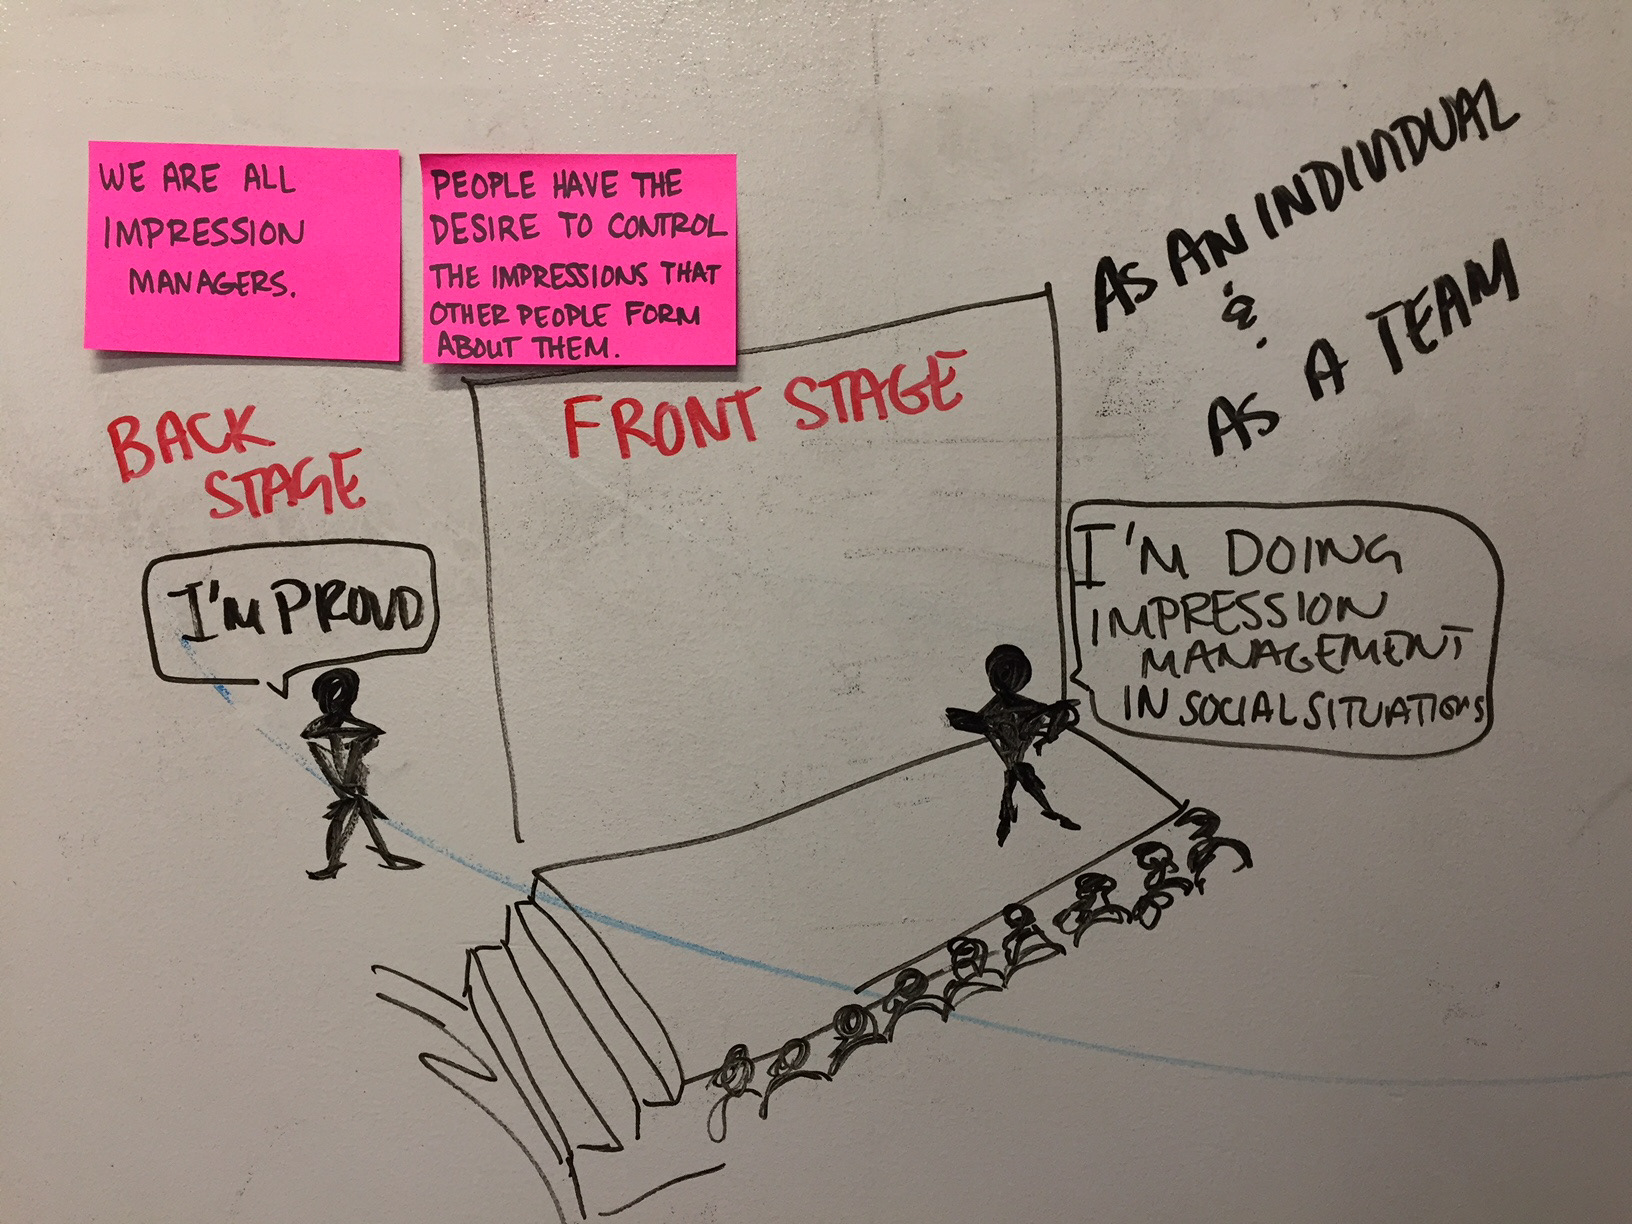 WE ARE ALL
IMPRESSION
MANAGERS.
PEOPLE HAVE THE
DESIRE TO CONTROL
THE IMPRESSIONS THAT
OTHER PEOPLE FORM
ABOUT THEM.
AS AN INDIVIDUAL
&
AS A TEAM
BACK
STAGE
FRONT STAGE
I'M PROUD
I'M DOING
IMPRESSION
MANAGEMENT
IN SOCIAL SITUATIONS